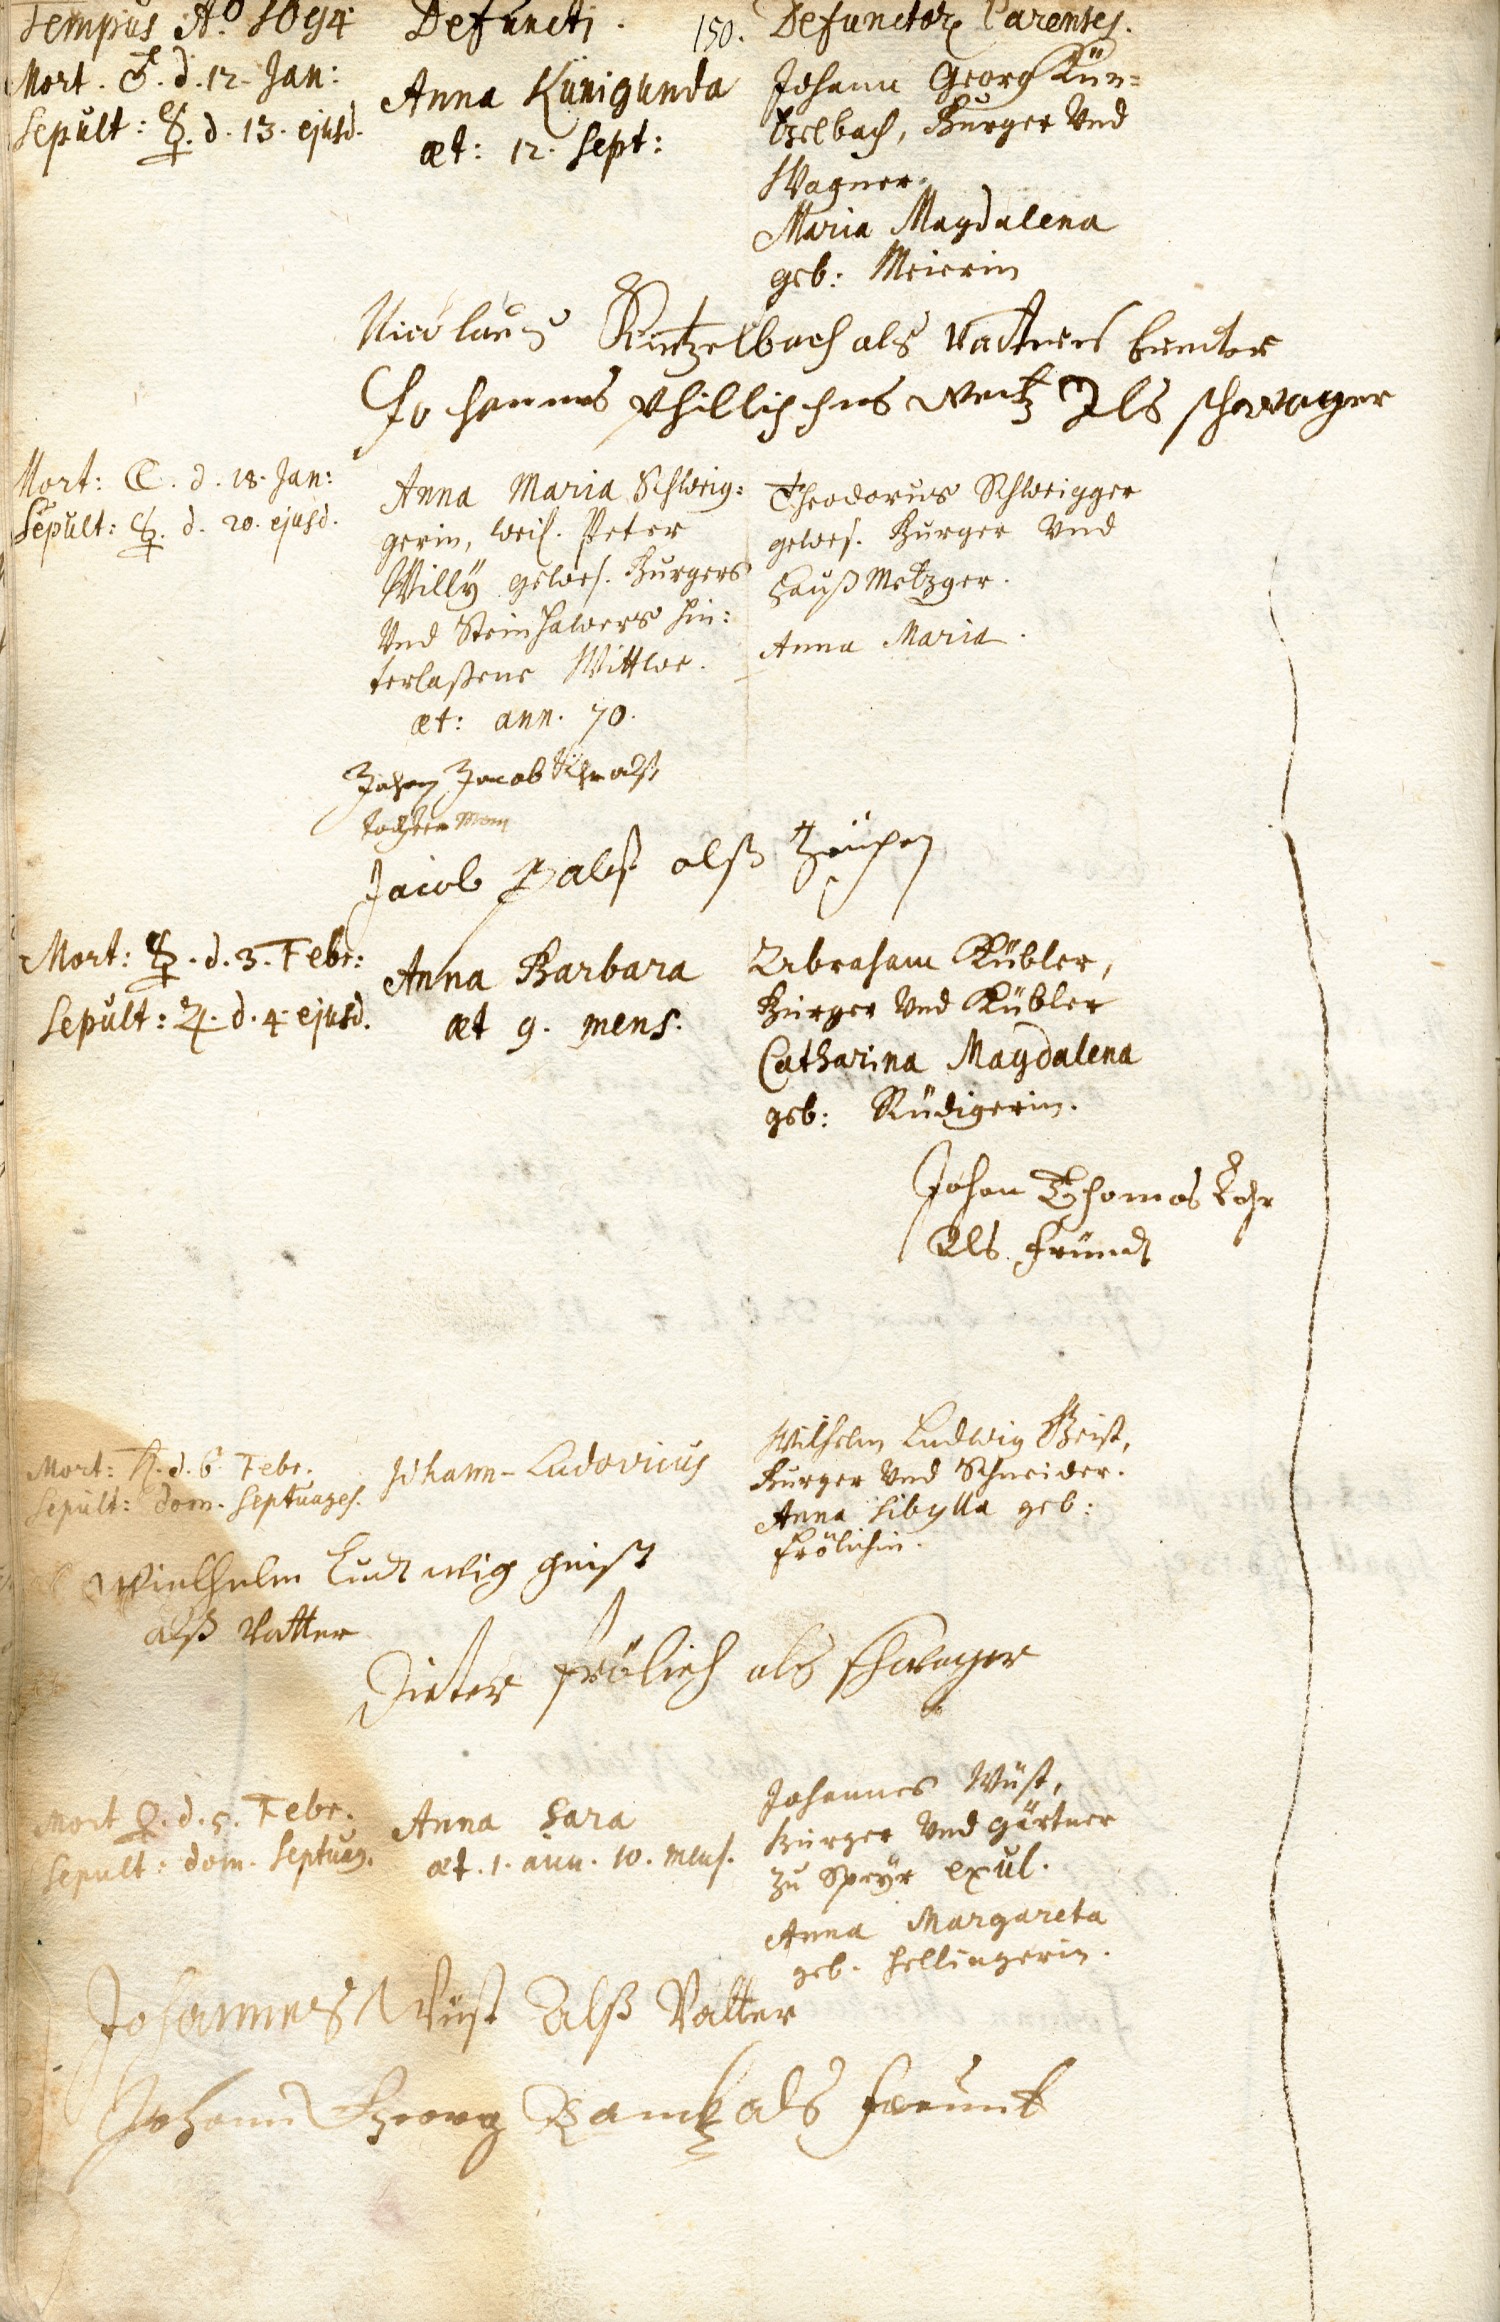 Tempus Aº. 1694 Defuncti. 150. Defunctor. Parentes.
Mort. ♂. d. 12. Jan:
Sepult: ☿. d. 13. ejusd.
Anna Kunigunda
æt: 12. Sept:
Johann Georg Kün=
tzelbach, Burger Vnd
Wagner.
Maria Magdalena
geb: Meierin
Nicolaus Kintzelbach als Vatters bruder
Johannes Phillippus als schwager
Mort: ☾. d. 18. Jan:
Sepult: ☿. d. 20. ejusd.
Anna Maria Schweig:
gerin, weil. Peter
Willÿ gewes. Burgers
Vnd Steinhawers hin:
terlaßene Wittwe.
æt: ann. 70.
Theodorus Schweigger
gewes. Burger Vnd
Hauß Metzger.
Anna Maria.
Johan Jacob
tochter Man
Jacob Pabst alß Zeügen
Mort: ☿. d. 3. Febr:
Sepult: ♃. d. 4. ejusd.
Anna Barbara
æt 9. mens.
Abraham Kübler,
Burger Vnd Kübler
Catharina Magdalena
geb: Rüdigerin.
Johan Thomas
Als freündt
Mort: ♄. d. 6. Febr.
Sepult: dom. Septuages.
Johann-Ludovicus
Wilhelm Ludwig Geist,
Burger Vnd Schneider.
Anna Sibylla geb:
Frölichin.
Wielhelm Ludwig geist
alß Vatter
Dieter frölich als schwager
Mort ♀. d. 5. Febr.
Sepult: dom. Septuag.
Anna Sara
æt. 1. ann. 10. mens.
Johannes Wüst,
Burger Vnd Gärtner
zu Speyr exul.
Anna Margareta
geb. Hellingerin.
Johannes Wüst Alß Vatter
Johann Georg als freunt